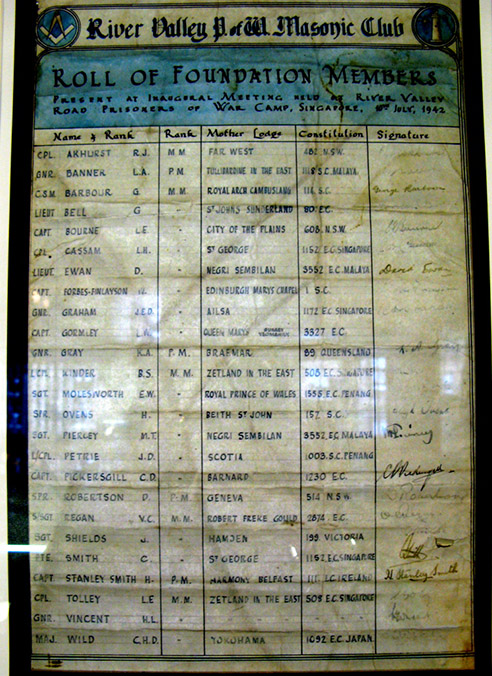 River Valley P. of W. Masonic Club
ROLL OF FOUNDATION MEMBERS
PRESENT AT INAUGURAL MEETING HELD AT RIVER VALLEY
ROAD PRISONERS OF WAR CAMP, SINGAPORE, JULY, 1942
Name & Rank Rank Mother Lodge Constitution Signature
CPL. AKHURST R.J. M M FAR WEST N.S.W.
GNR. BANNER L.A. P M TULLIBARDINE IN THE EAST 1118 S.C. MALAYA
C.S.M. BARBOUR G. M M ROYAL ARCH CAMBUSLANG 114 S.C.
LIEUT BELL G " ST JOHNS SUNDERLAND 80. E.C.
CAPT. BOURNE L.E " CITY OF THE PLAINS 608. N.S.W.
CPL. CASSAM L.H. " ST GEORGE 1152 E.C. SINGAPORE
LIEUT. EWAN D. " NEGRI SEMBILAN 3552 E.C. MALAYA David Ewan
CAPT. FORBES-FINLAYSON " EDINBURGH MARYS CHAPEL 1 S.C.
GNR. GRAHAM J.E.D. " AILSA 1172 E.C. SINGAPORE
CAPT. GORMLEY " QUEEN MARYS 3327 E.C.
GNR. GRAY K.A. P. M. BRAEMAR 89 QUEENSLAND
L/CPL. KINDER B.S. M. M. ZETLAND IN THE EAST 508 E.C. SINGAPORE
SGT. MOLESWORTH E.W. " ROYAL PRINCE OF WALES 1555 E.C. PENANG
SPR. OVENS H. " BEITH ST JOHN 157 S.C.
SGT. PIERCEY M.T. " NEGRI SEMBILAN 3552 E.C. MALAYA
L/CPL. PETRIE J.D. " SCOTIA 1003. S.C. PENANG
CAPT. PICKERSGILL C.D. " BARNARD 1230 E.C.
SPR. ROBERTSON D. P M GENEVA 514 N.S.W.
S/SGT REGAN V.C. M. M. ROBERT FREKE GOULD 2874 E.C.
SGT. SHIELDS J. " HAMDEN 199. VICTORIA
PTE. SMITH C. " ST GEORGE 1152 E.C. SINGAPORE
CAPT STANLEY SMITH H. P. M. HARMONY BELFAST 111. I.C. IRELAND H Stanley Smith
CPL. TOLLEY L.E M. M. ZETLAND IN THE EAST 508 E.C. SINGAPORE
GNR. VINCENT H.L. " " "
MAJ. WILD C.H.D. " YOKOHAMA 1092 E.C. JAPAN.